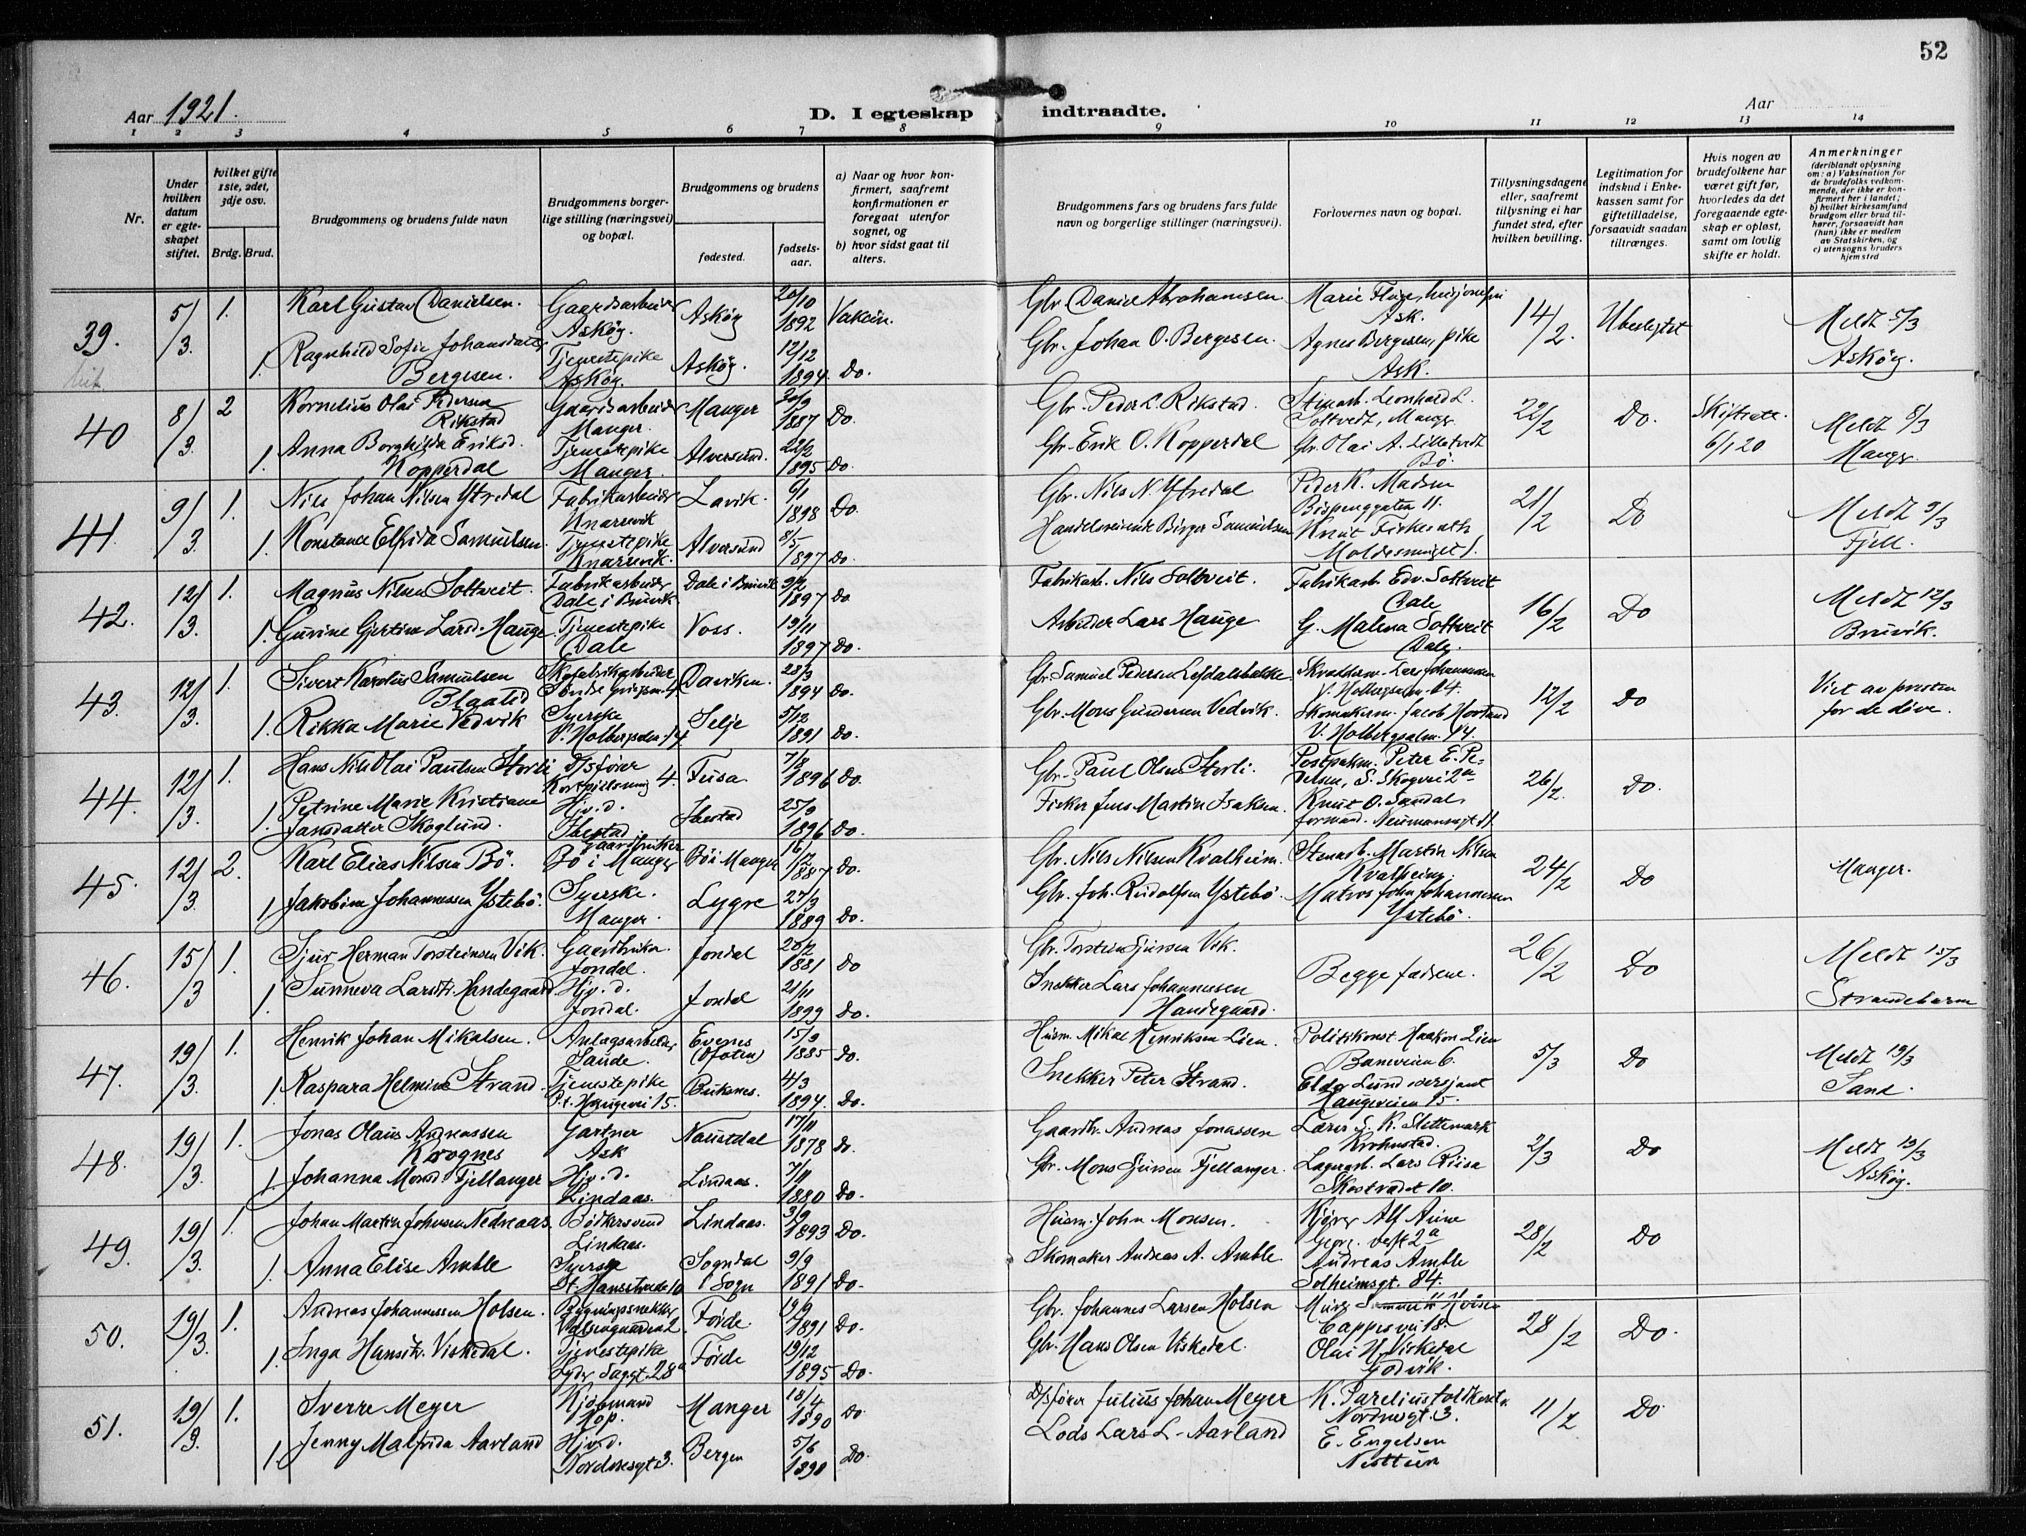 52
Aar 1921.
D. I egteskap indtraadte.
Aar
1 2 3 4 5 6 7 8 9 10 11 12 13 14
Nr.
Under hvilken datum er egteskapet stiftet.
hvilket gifte 1ste, 2det, 3dje osv.
Brdg. Brud.
Brudgommens og brudens fulde navn
Brudgommens borgerlige stilling (næringsvei) og bopæl.
Brudgommens og brudens
fødested.
fødselsaar.
a) Naar og hvor konfirmert, saafremt konfirmationen er foregaat utenfor sognet, og
b) hvor sidst gaat til alters.
Brudgommens fars og brudens fars fulde navn og borgerlige stillinger (næringsvei).
Forlovernes navn og bopæl.
Tillysningsdagene eller, saafremt tillysning ei har fundet sted, efter hvilken bevilling.
Legitimation for indskud i Enkekassen samt for giftetilladelse, forsaavidt saadan tiltrænges.
Hvis nogen av brudefolkene har været gift før, hvorledes da det foregaaende egteskap er opløst, samt om lovlig skifte er holdt.
Anmerkninger
(deriblandt oplysning om: a) Vaksination for de brudefolks vedkommende, der ikke er konfirmert her i landet; b) hvilket kirkesamfund brudgom eller brud tilhører, forsaavidt han (hun) ikke er medlem av Statskirken, og c) utensogns bruders hjemsted
39. 5/3. 1. Karl Gustav Danielsen. Gaardsarbeider Askøy. Askøy 20/10 1892 Vaksin. Gbr. Daniel Abrahamsen Marie Ask. 14/2. Ubesluttet Meldt 5/3 Askøy.
1. Ragnhild Sofie Johansdatter Bergesen. Tjenestepike Askøy. Askøy. 12/12 1894. Do. Gbr. Johan O. Bergesen. Agnes Bergesen, pike Ask.
40 8/3. 2 Kornelius Olai Pedersen Rikstad Gaardsarbeider Manger. Manger 20/9 1887 Do. Gbr. Peder L. Rikstad. Leonhard L. Soltvedt, Manger 22/2 Do. Skifteatt. 6/1 20 Meldt 8/3 Manger
1. Anna Borghilda Eriksd. Kopperdal Tjenestepike Manger. Alversund. 22/2 1895 Do. Gbr. Erik O. Kopperdal Gbr. Olai A. Bø.
41. 9/3. 1. Nils Johan Nilsen Ytredal Fabrikarbeider Knarrevik Lavik. 9/1 1898 Do. Gbr. Nils N. Ytredal Peder K. Madsen 11. 21/2 Do Meldt 9/3 Fjell.
1. Konstance Elfrida Samuelsen. Tjenestepike Knarrevik. Alversund 8/5 1897 Do. Handelsreisende Birger Samuelsen Knut 1.
42. 12/3. 1. Magnus Nilsen Soltveit. Fabrikarbeider Dale i Bruvik Dale i Bruvik 9/2 1897 Do. Fabrikarb. Nils Soltveit. Fabrikarb. Edv. Soltveit Dale 16/2 Do Meldt 12/3 Bruvik.
1. Gurine Gjertine Larsd. Hauge. Tjenestepike Dale Voss. 19/11 1897 Do. Arbeider Lars Hauge G. Malena Soltveit Dale.
43. 12/3. 1. Sivert Karolus Samuelsen Blaalid Skofabrikarbeider Daviken. 28/3 1894 Do. Gbr. Samuel Pedersen Johannesen V. Holbergsalm. 14. 12/2 Do Viet av presten for de døve.
1. Rikka Marie Vedvik Syerske V. Holbergsalm. 14. Selje 5/12 1891 Do. Gbr. Mons Gundersen Vedvik. Skomakerm. Jacob Hovland V. Holbergsalm. 14.
44. 12/3. 1. Hans Nils Olai Paulsen Storli D/sfører 4. Fusa 7/8 1896 Do. Gbr. Paul Olsen Storli. Postpakm. Peter E. Pedersen, S. Skogvei 2a 26/2. Do.
1. Petrine Marie Kristiane Jensdatter Skoglund. Hjv. d. Ibestad Ibestad 25/9 1896 Do. Fisker Jens Martin Isaksen. Knut O. Sandal, formand. Neumannsgt. 11.
45. 12/3. 2. Karl Elias Nilsen Bø. Gaardbruker Bø i Manger Bø i Manger 1887 Do. Gbr. Nils Nilsen Kvalheim. Stenarb. Martin Nilsen Kvalheim. 24/2 Do Manger.
1. Jakobine Johannessen Ystebø. Syerske. Manger. Lygre 27/3 1889 Do. Gbr. Joh. Rudolfsen Ystebø. Matros John Johannessen Ystebø.
46. 15/3 1. Sjur Herman Torsteinsen Vik. Gaardbruker. Jondal. Jondal 26/2 1881 Do Gbr. Torstein Sjursen Vik. 26/2 Do Meldt 15/3 Strandebarm
1. Sunneva Larsdtr. Handegaard Hjv. d. Jondal. Jondal 21/11 1899 Do. Snekker Lars Johannessen Handegaard. Begge fædrene.
47. 19/3. 1. Henrik Johan Mikalsen. Anlægsarbeider Saude. Evenes (Ofoten) 15/9 1885 Do. Husm. Mikal Henriksen Lien. Politikonst. Haakon Lien Baneveien 6. 5/3 Do Meldt 19/3 Sand.
1. Kaspara Helmine Strand. Tjenestepike P.t. Haugevei 15. Buksnes. 4/3 1894. Do. Snekker Peter Strand. Lund sersjant Haugeveien 15.
48. 19/3. 1. Jonas Olaus Andreassen Krognes Gartner Ask Naustdal 17/11 1878 Do. Gaardbr. Andreas Jonassen Lærer S. K. Slettemark Krohnstad. 2/3 Do Meldt 19/3 Askøy.
1. Johanna Monsd. Fjellanger Hjv. d. Lindaas. Lindaas. 7/11 1880 Do. Gbr. Mons Sjursen Fjellanger. Lagerarb. Lars Riisa Skostrædet 10.
49. 19/3. 1. Johan Martin Johnsen Nedreaas. Bødkersvend Lindaas. Lindaas. 3/9 1893 Do. Husm. John Monsen. Kjører Alf Aune 2a 28/2 Do
1. Anna Elise Amble Syerske St. Hansstræde 10 Sogndal i Sogn 9/9 1891 Do. Skomaker Andreas A. Amble Andreas Amble Solheimsgt. 84.
50. 19/3. 1. Andreas Johannessen Holsen. Bygningssnekker 2. Førde 19/9 1891 Do. Gbr. Johannes Larsen Holsen Murer Holsen Cappesvei 18. 28/2 Do.
1. Inga Hansdtr. Viskedal. Tjenestepike 28a Førde 19/12 1895 Do. Gbr. Hans Olsen Viskedal. Olai H. Viskedal Godvik.
51. 19/3. 1. Sverre Meyer Kjøbmand Hop. Manger 18/4 1890 Do. D/sfører Julius Johan Meyer K. Parelius toldkontr. Nordnesgt. 3. 11/2 Do.
1. Jenny Malfrida Aarland Hjv. d. Nordnesgt. 3. Bergen 5/6 1890 Do. Lods Lars L. Aarland E. Engelsen Nesttun